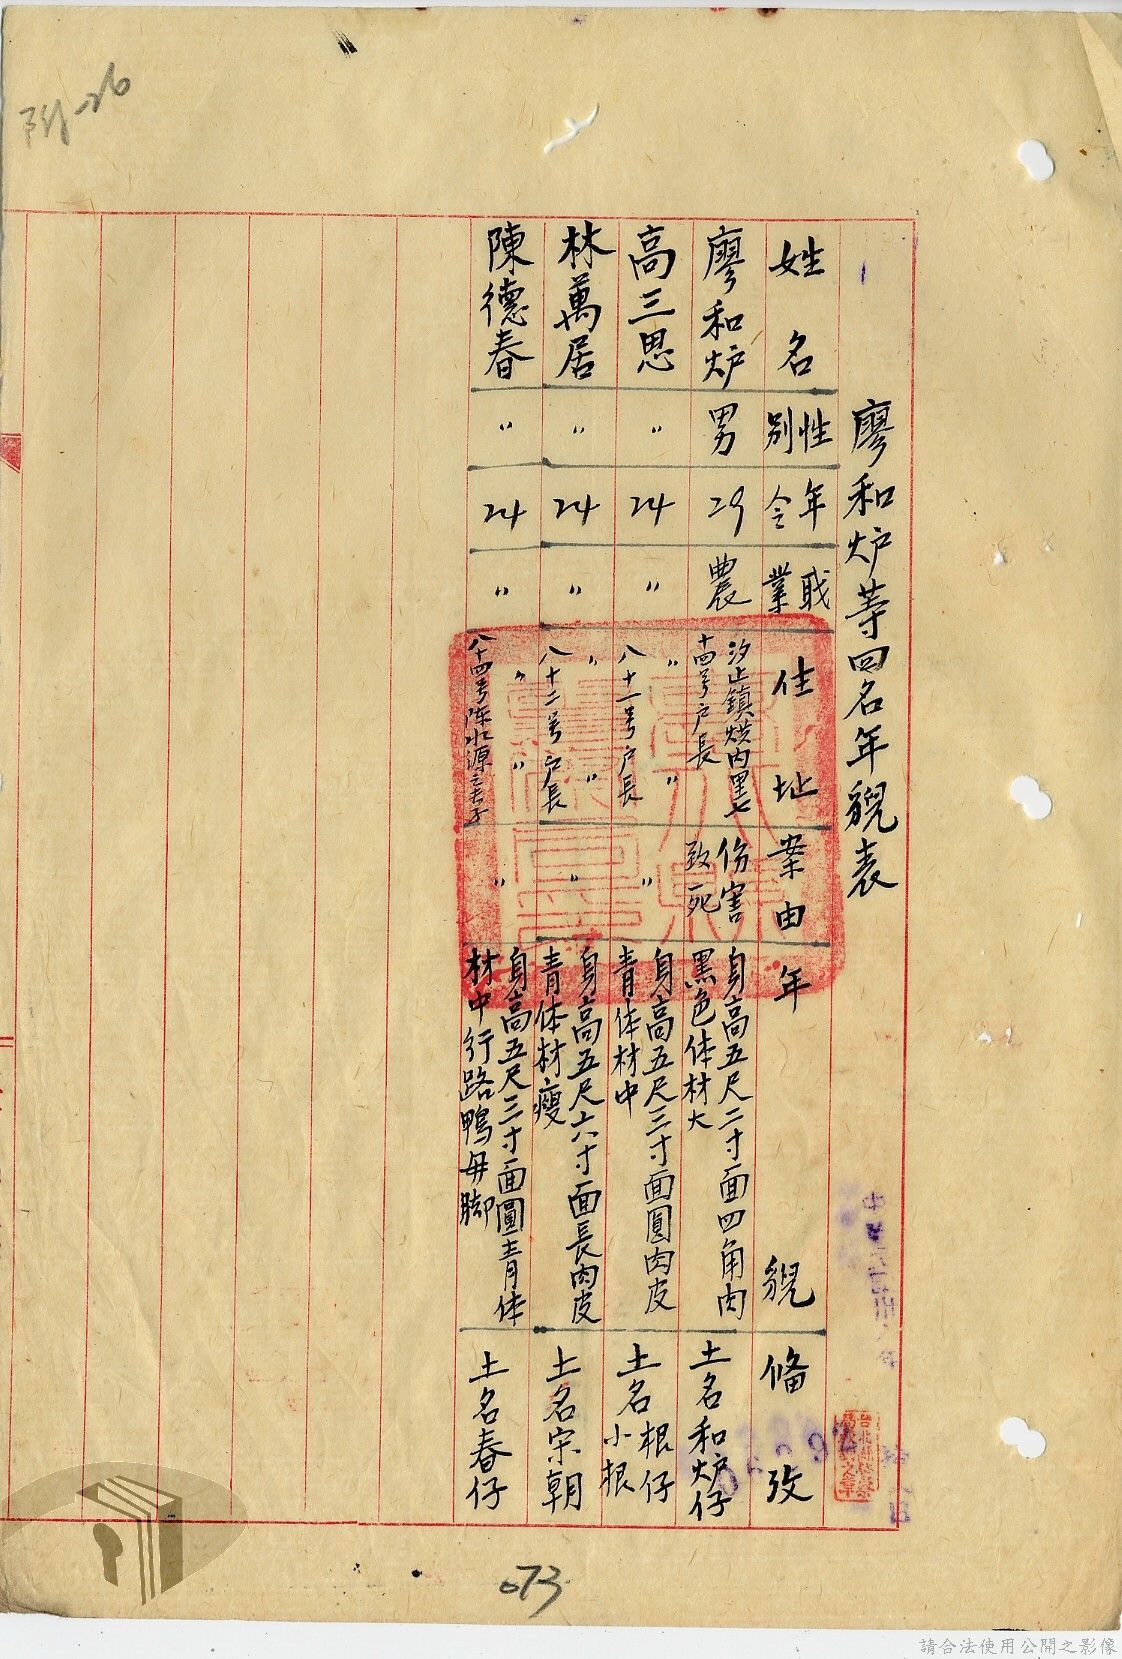 廖和炉等四名年貌表
姓名 性別 年令 職業 住址 案由 年貌 备攷
廖和炉 男 29 農 汐止鎮烘内里七十四号户長 伤害致死 身高五尺二寸面四角肉黑色体材大 土名和炉仔
高三思 〃 24 〃 〃 〃 八十一号户長 〃 身高五尺三寸面圓肉皮青体材中 土名根仔小根
林萬居 〃 24 〃 〃 〃 八十二号户長 〃 身高五尺六寸面長肉皮青体材瘦 土名宗朝
陳德春 〃 24 〃 〃 〃 八十四号陈水源之長子 〃 身高五尺三寸面圓青体材中行路鴨母脚 土名春仔
073
請合法使用公開之影像